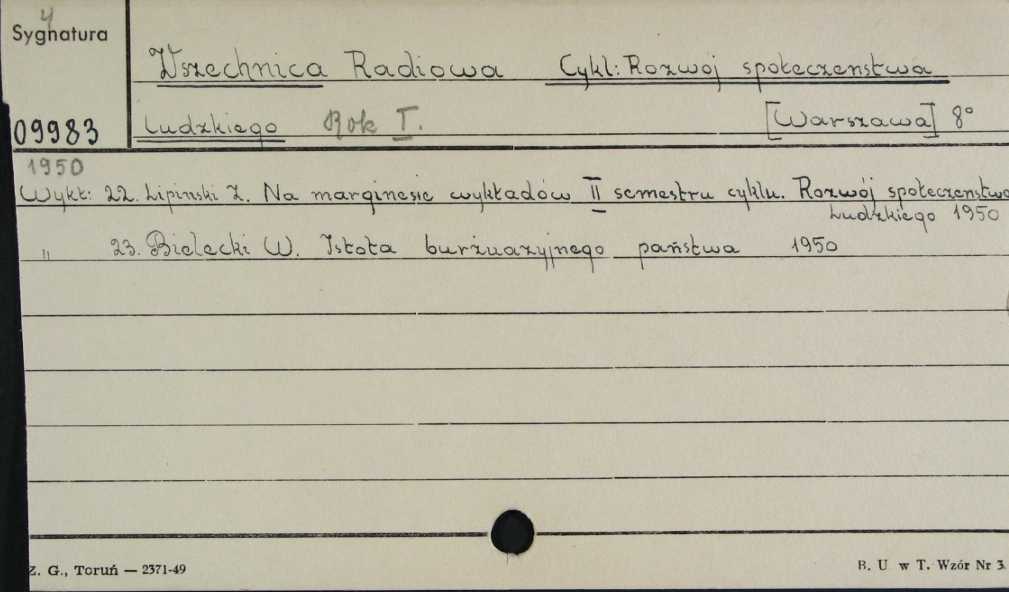 4
Sygnatura
Wszechnica Radiowa Cykl: Rozwój społeczeństwa
09983 Ludzkiego Rok I. [Warszawa] 8°
1950
Wykł: 22. Lipiński Z. Na marginesie wykładów II semestru cyklu. Rozwój społeczeństwa
Ludzkiego 1950
" 23. Bielecki W. Istota burżuazyjnego państwa 1950
Z. G., Toruń — 2371-49
B. U w T. Wzór Nr 3.